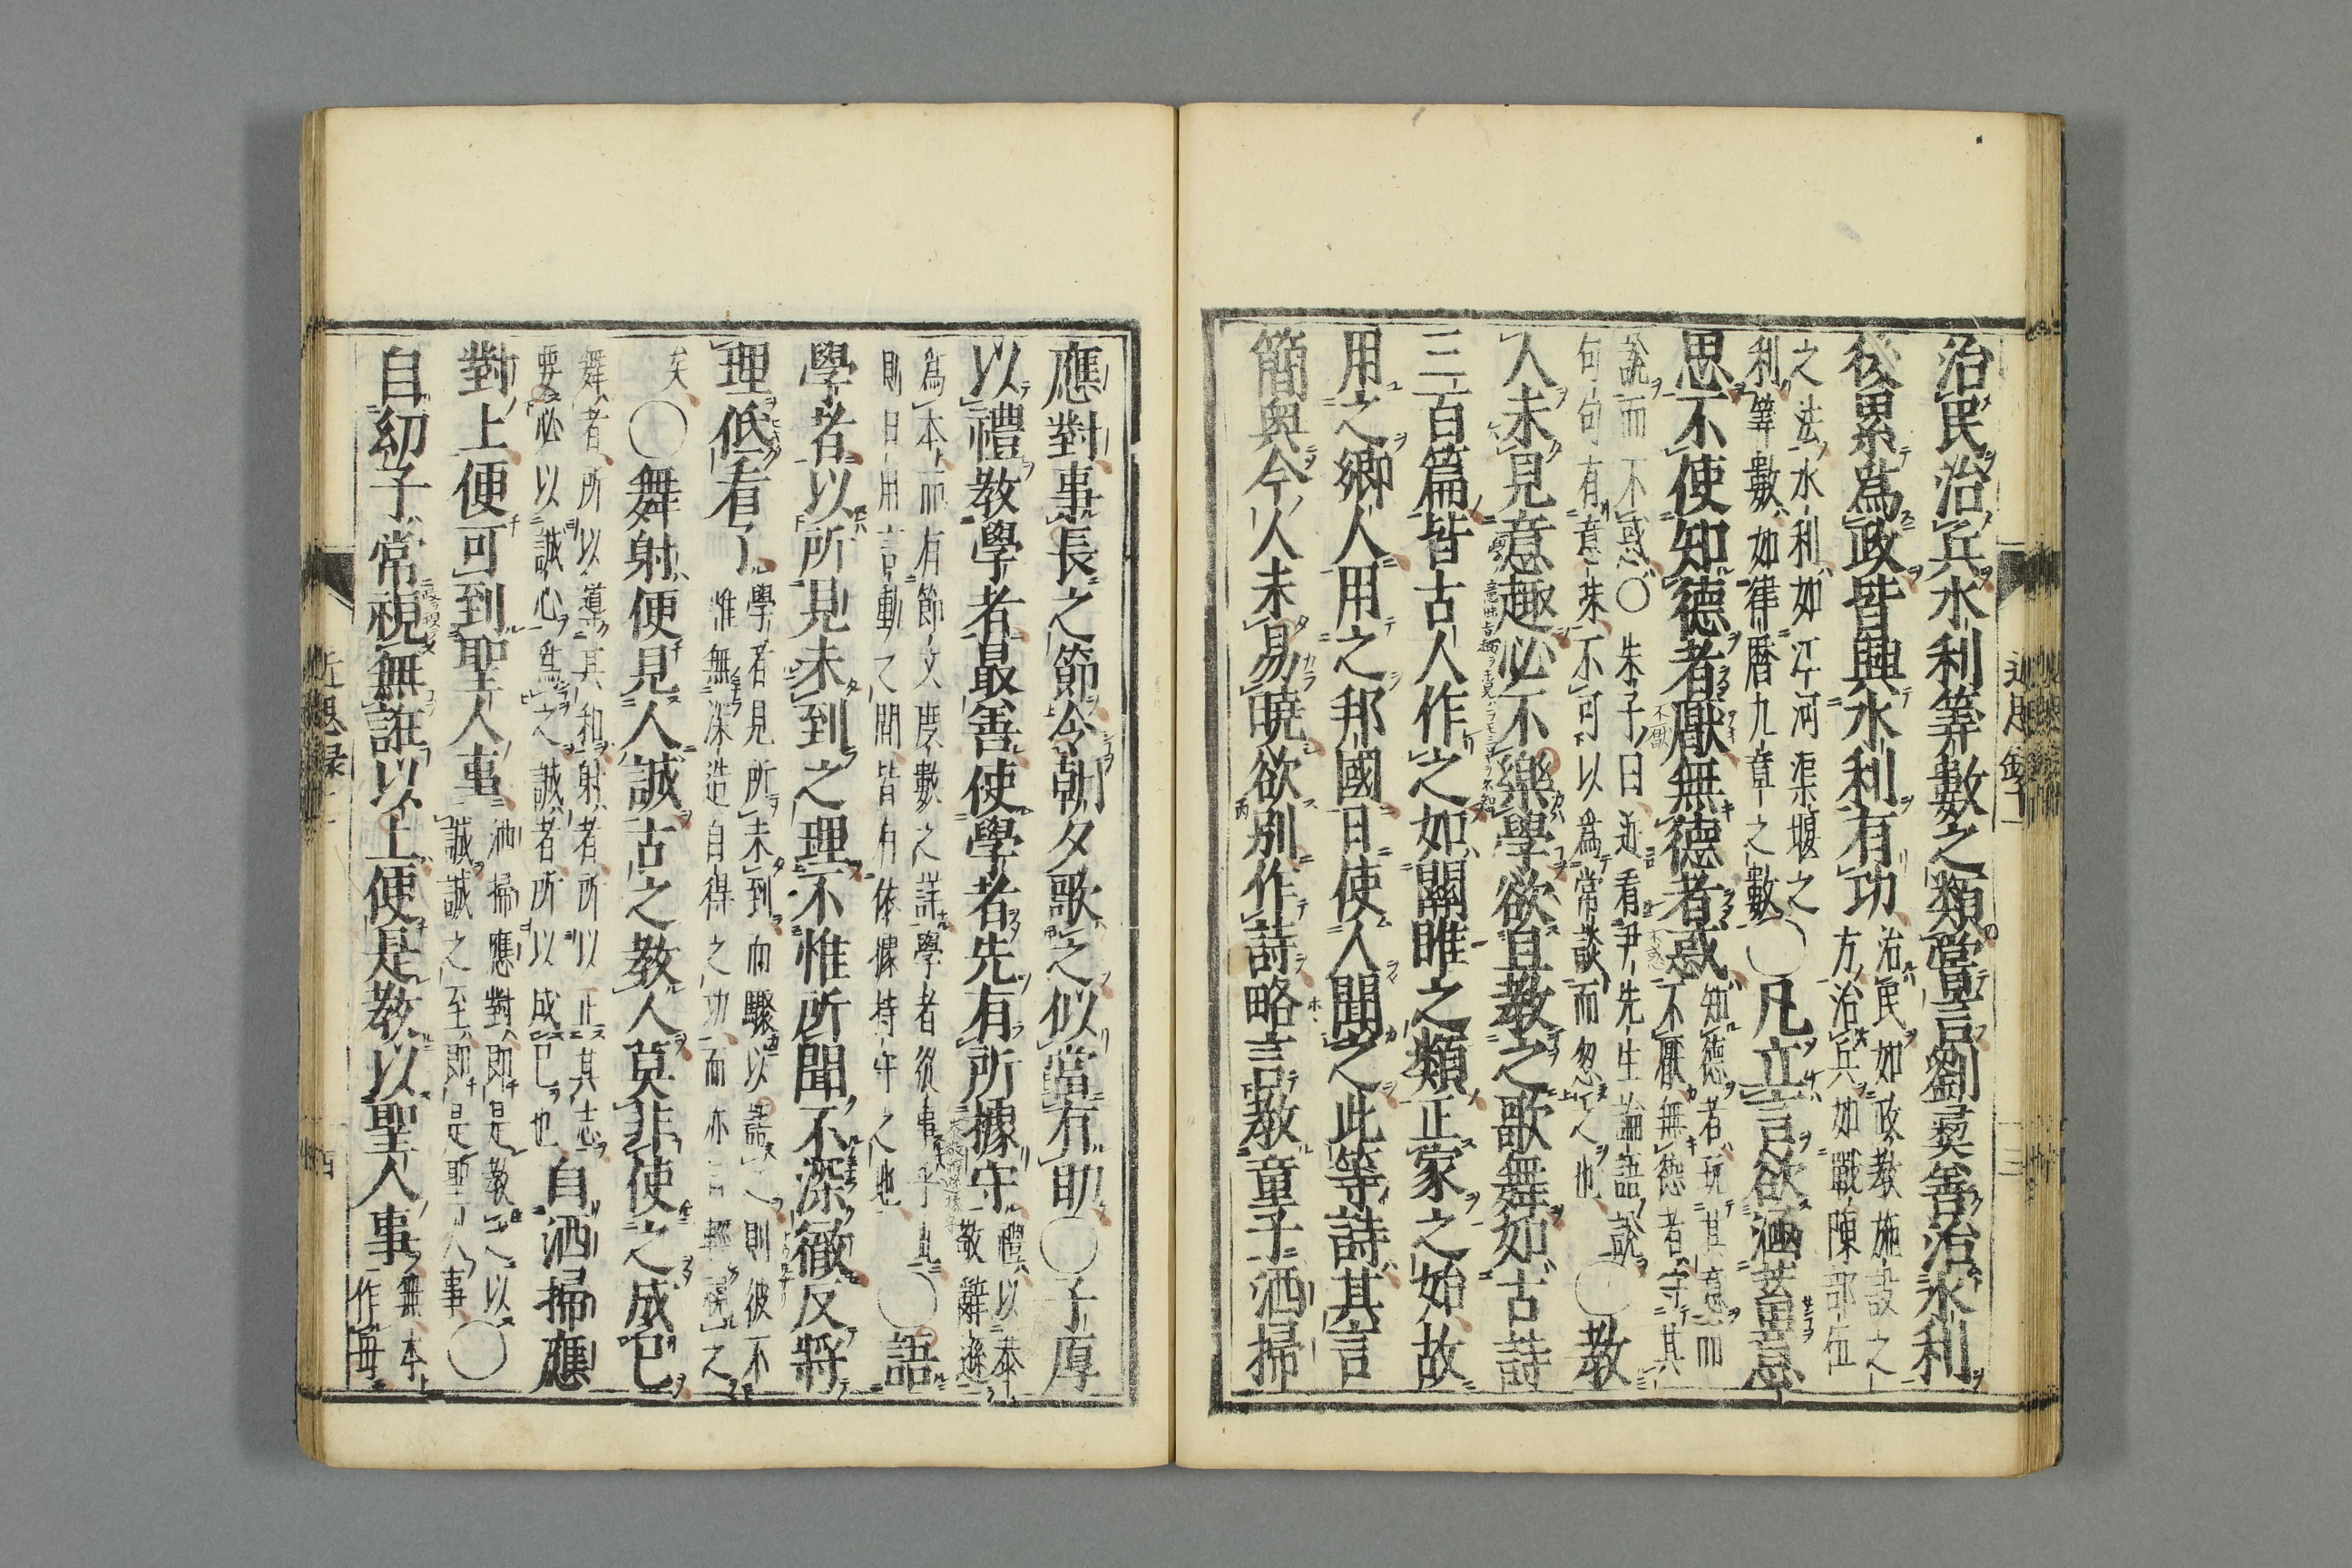 治民治兵水利筭數之類嘗言劉彛善治水利
後累爲政皆興水利有功
治民如政教施設之
方治兵如戰陳部伍
之法水利如江河渠堰之
利筭數如律暦九章之數
〇凡立言欲涵蓄意
思不使知德者厭無德者惑
知德者玩其意而
不厭無德者守其
說而不惑〇朱子曰近看尹先生論語說
句句有意朱不可以爲常談而忽之也
〇教
人未見意趣必不樂學欲且教之歌舞如古詩
三百篇皆古人作之如關雎之類正家之始故
用之郷人用之邦國日使人聞之此等詩其言
簡奥今人未易曉欲別作詩略言教童子洒掃
應對事長之節令朝夕歌之似當有助〇子厚
以禮教學者最善使學者先有所據守
禮以恭
敬辭遜
爲本而有節文度數之詳學者從事乎此
則日用言動之間皆有依據持守之地
〇語
學者以所見未到之理不惟所聞不深徹反將
理低看了
學者見所未到而驟以語之則彼不
惟無深造自得之功而亦言輕視之
矣
〇舞射便見人誠古之教人莫非使之成已
舞者所以導其和射者所以正其志
要必以誠心爲之誠者所以成已也
自洒掃應
對上便可到聖人事
洒掃應對即是教之以
誠誠之至即是聖人事
〇
自幼子常視無誑以上便是教以聖人事
無本上
作毋
近思録二
三
近思録二
四